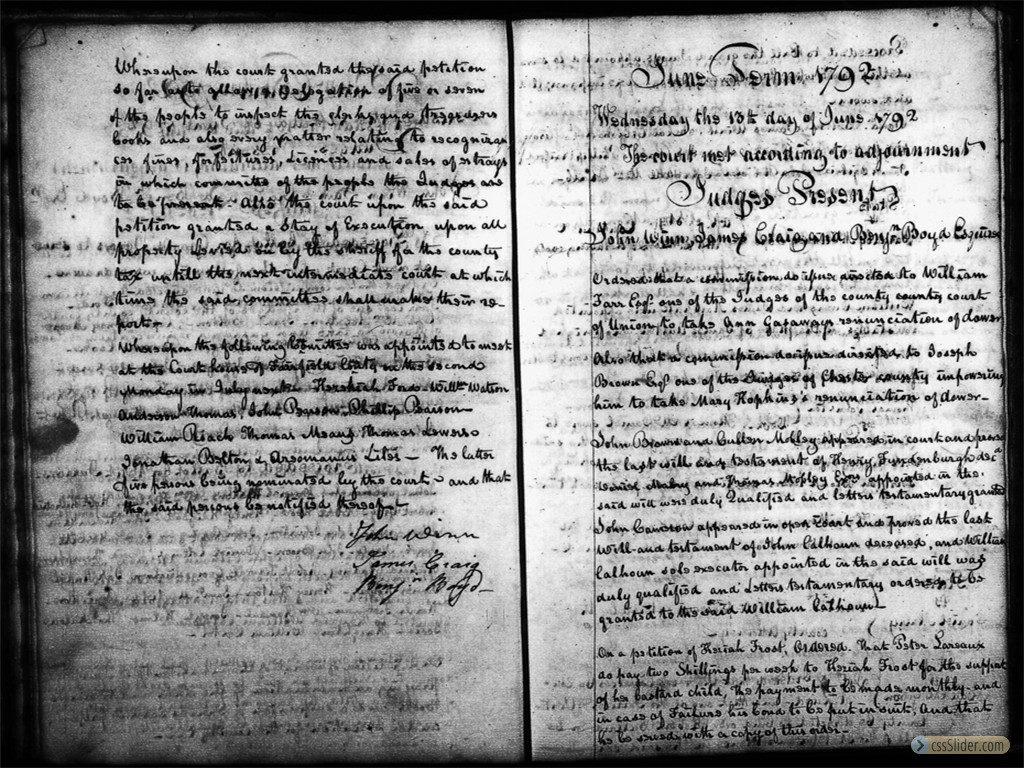 Whereupon the court granted the said petition
so far as to allow a Delegation of five or seven
of the people to inspect the clerks and Treasurers
books and also every matter relating to recognizan-
ces fines, forfeitures, Licences and sales of estrays
in which committe of the people the Judges are
to be present. Also the court upon the said
petition granted a Stay of Execution upon all
property levied on by the sheriff for the county
tax untill the next intermediate court at which
time the said committee shall make their re-
port.
Whereupon the following Committee was appointed to meet
at the Court house of Fairfield County on the second
Monday in July next Hezekiah Ford Willm Watson
Anderson Thomas, John Pearson, Phillip Pearson
William Roack Thomas Means, Thomas Lewers
Jonathan Belton & Aromanus Liles — The later
five persons being nominated by the court and that
the said persons be notified thereof
John Winn
James Craig
Benjn Boyd
June Term 1792
Wednesday the 13th day of June 1792
The court met according to adjournment
Judges Present
John Winn, James Craig and Benjn Boyd Esquires
Ordered that a commission do issue directed to William
Farr Esqr one of the Judges of the county county court
of Union to take Ann Gasaways renunciation of dower
Also that a commission do issue directed to Joseph
Brown Esqr one of the Judges of Chester county impowering
him to take Mary Hopkins's renunciation of dower—
John Brown and Cullen Mobley appeared in court and proved
the last will and testament of Henry Funderburgh decd
Daniel Mabry and Thomas Mobley Exrs appointed in the
said will were duly Qualified and letters testamentary granted
John Cameron appeared in open court and proved the last
Will and testament of John Calhoun deceased, and William
Calhoun sole executor appointed in the said will was
duly qualified and Letters testamentary ordered to be
granted to the said William Calhoun
On a petition of Keziah Frost, Ordered. That Peter Lareaux
do pay two Shillings per week to Keziah Frost for the support
of her bastard child, the payment to be made monthly and
in case of Failure his bond to be put in suit, And that
he be served with a copy of this order—
cssSlider.com